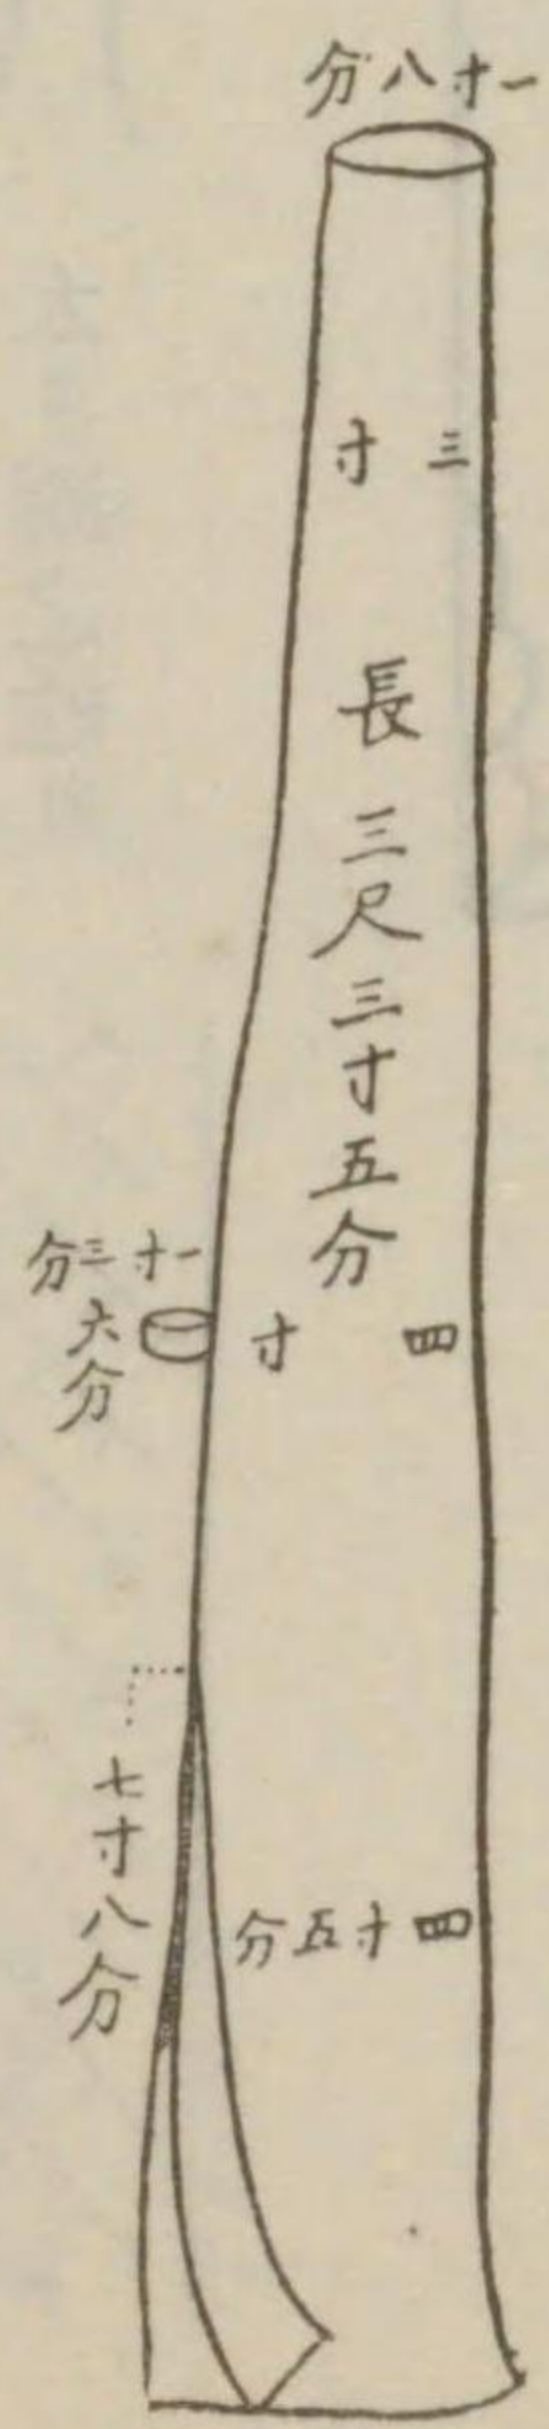 一寸八分
三寸
長三尺三寸五分
一寸三分
六分
四寸
七寸八分
四寸五分